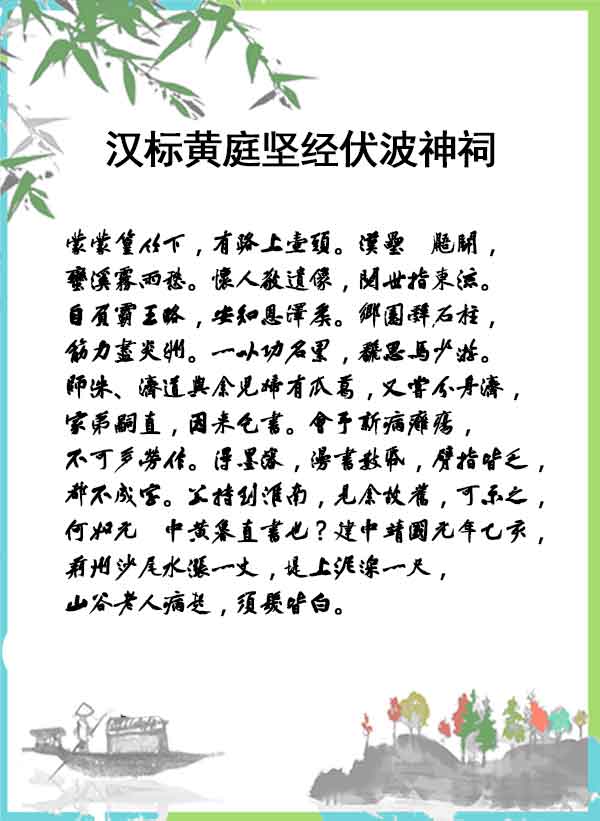 汉标黄庭坚经伏波神祠
蒙蒙篁竹下，有路上壺頭。漢壘　鼯鬭，
蠻溪霧雨愁。懷人敬遺像，閱世指東流。
自負霸王略，安知恩澤矦。鄉園辭石柱，
筋力盡炎洲。一以功名累，翻思馬少游。
師洙、濟道與余兒婦有瓜葛，又嘗分舟濟，
家弟嗣直，因來乞書。會予新病癰瘍，
不可多勞作。得墨瀋，漫書數紙，臂指皆乏，
都不成字。若持到淮南，見余故舊，可示之，
何如元　中黃魯直書也？建中靖國元年乙亥，
荊州沙尾水漲一丈，堤上泥深一尺，
山谷老人病起，須髮皆白。